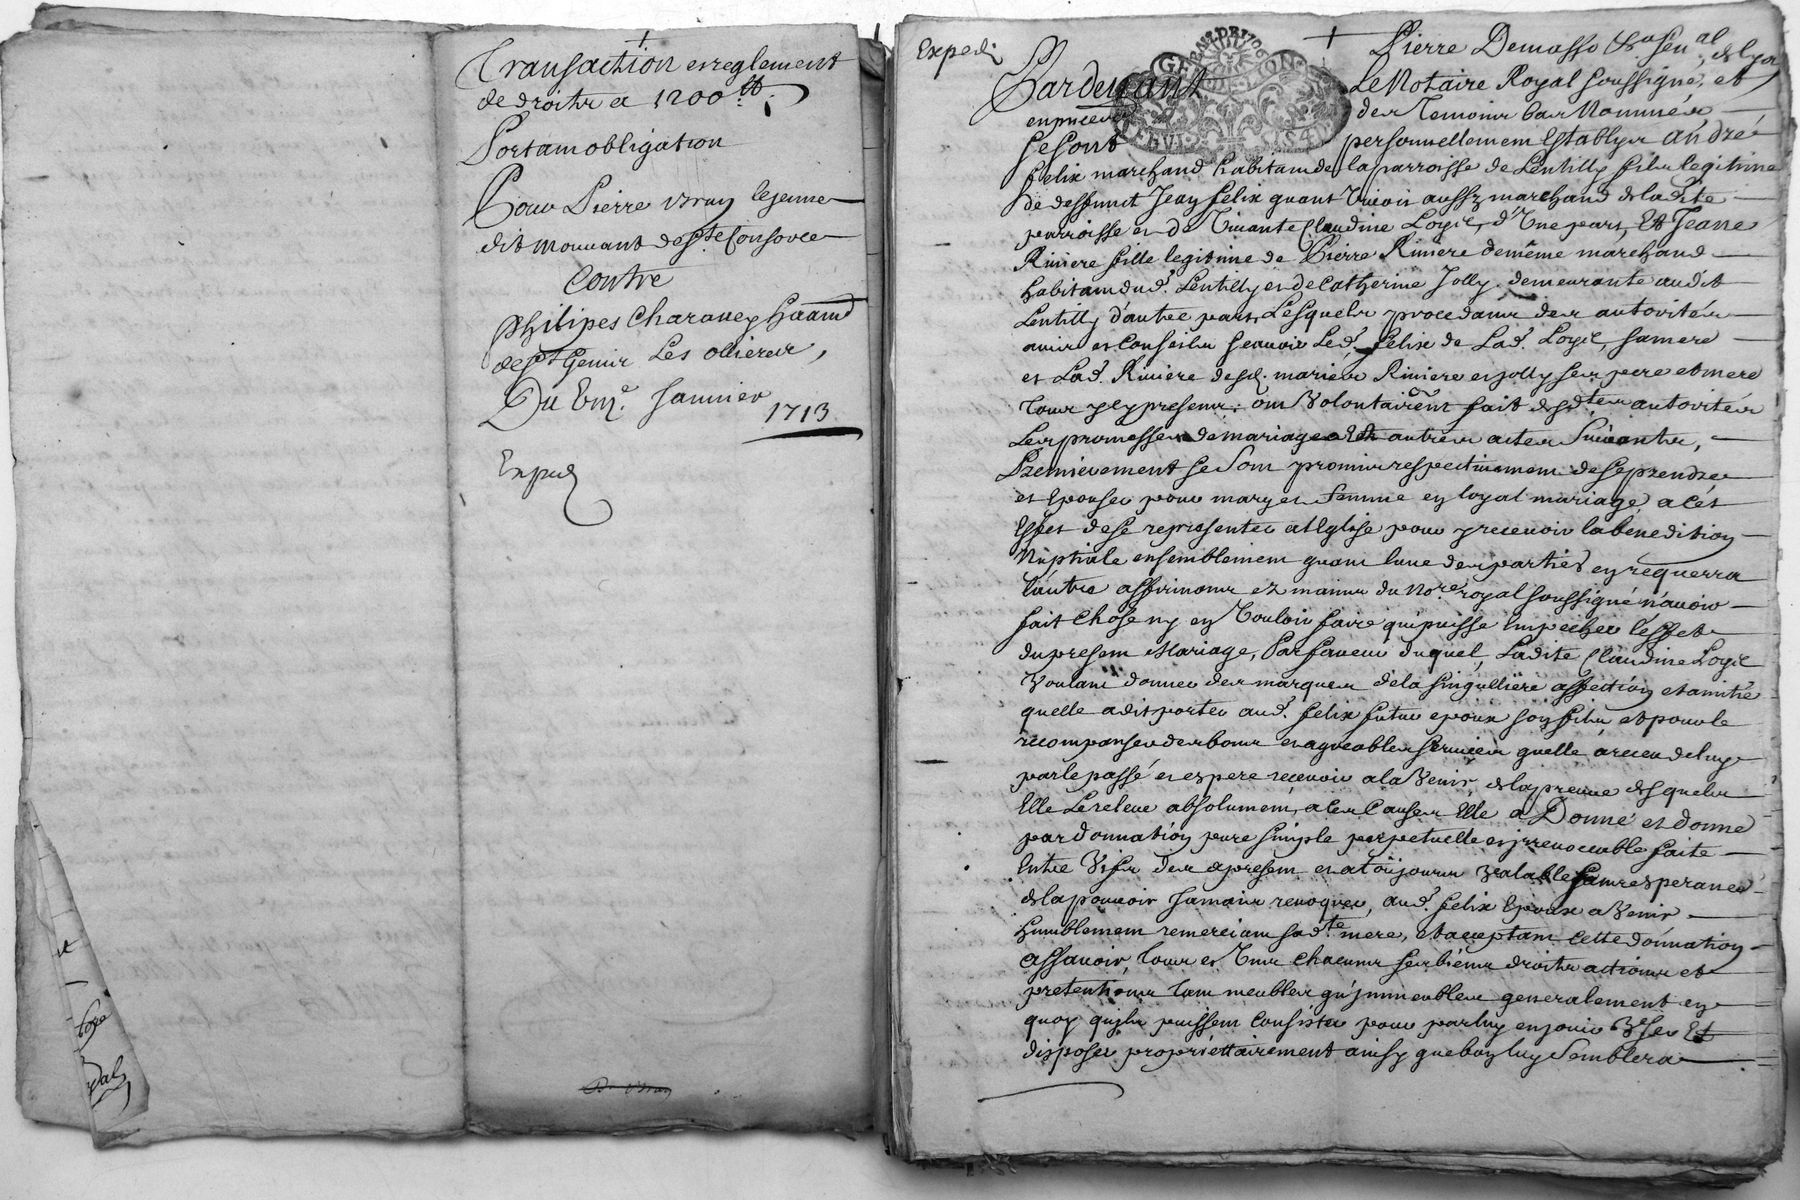 Transaction et reglement
de droitz a 1200 ₶
Portant obligation
Pour Pierre Vray lejeune
dit mouvant de Ste Consorce
Contre
Philipes Charavey Grand
de St Genis Les ollieres,
Du Janvier
1713
Exped
Exped.
Pierre Demasso
Pardevant Le Notaire Royal soussigné, et
en presence des Temoins bas Nommés
se sont personnellement Establys André
felix marchand habitant de la parroisse de Lentilly fils legitime
de deffunct Jean felix quant vivoit aussy marchand de ladite
parroisse et de vivante Claudine Logie, d'Une part, Et Jeanne
Riviere fille legitime de Pierre Riviere demême marchand
habitant dud. Lentilly et de Catherine Jolly demeurante audit
Lentilly d'autre part, Lesquels procedant des autorités
avis et Conseils sçavoir Led. felix de Lad. Logie, sa mere
et Lad. Riviere desd. mariés Riviere et jolly ses pere et mere
tous icy presens, ont Volontairemt fait desdtes autorités
Les promesses de mariage et autres actes Suivants,
Premierement se sont promis respectivement de se prendre
et Epouser pour mary et femme en loyal mariage, a cet
Effet de se representer a l'Eglise pour y recevoir la benediction
Nuptiale ensemblement quant l'une des parties en requerra
l'autre affirmant ez mains du Nore royal soussigné n'avoir
fait Chose ny en Vouloir faire qui puisse Empecher l'effet
du present Mariage, Par faveur duquel, Ladite Claudine Logie
Voulant donner des marques de la singulliere affection et amitié
quelle a dit porter aud. felix futur epoux son fils et pour le
recompenser des bons et agreables services quelle a receu de luy
par le passé et espere recevoir a la Venir, de la preuve desquels
Elle Le releve absolument, a ces Causes Elle a Donné et donne
par donnation pure simple perpetuelle et jrrevocable faite
Entre Vifs des apresent et a toûjours Valable sans esperance
de la pouvoir Jamais revoquer, aud. felix Epoux a Venir
humblement remerciant sadte mere, et acceptant cette donnation
assavoir, tous et Uns chacuns ses biens droitz actions et
pretentions tant meubles qu'jmmeubles generalement en
quoy qu'ils puissent Consister pour par luy en jouir Vser Et
disposer proprietairement ainsy que bon luy Semblera